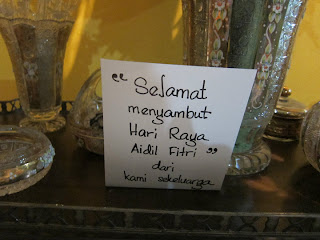 " Selamat
menyambut
Hari Raya
Aidil Fitri "
dari
kami sekeluarga